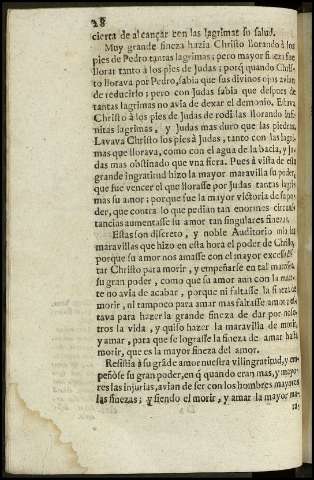 28
cierta de alcançar con las lagrimas su salud.
Muy grande fineza hazia Christo llorando à los
pies de Pedro tantas lagrimas; pero mayor fineza fue
llorar tanto à los pies de Judas; porq̃ quando Chris-
to llorava por Pedro, sabia que sus divinos ojos avian
de reducirlo; pero con Judas sabia que despues de
tantas lagrimas no avia de dexar el demonio. Estava
Christo à los pies de Judas de rodillas llorando infi-
nitas lagrimas, y Judas mas duro que las piedras.
Lavava Christo los pies à Judas, tanto con las lagri-
mas que llorava, como con el agua de la bacia, y Ju-
das mas obstinado que vna fiera. Pues à vista de esta
grande ingratitud hizo la mayor maravilla su poder,
que fue vencer el que llorasse por Judas tantas lagri-
mas su amor; porque fue la mayor victoria de su po-
der, que contra lo que pedian tan enormes circuns-
tancias aumentasse su amor tan singulares finezas.
Estas son discreto, y noble Auditorio mio las
maravillas que hizo en esta hora el poder de Christo,
porque su amor nos amasse con el mayor excesso: es-
tar Christo para morir, y empeñarse en tal
su gran poder, como que su amor aun con la muer-
te no avia de acabar, porque ni faltasse la fineza de
morir, ni tampoco para amar mas faltasse amor: es-
tava para hazer la grande fineza de dar por noso-
tros la vida, y quiso hazer la maravilla de morir,
y amar, para que se lograsse la fineza de amar hasta
morir, que es la mayor fineza del amor.
Resistia à su grãde amor nuestra vil ingratitud, y em-
peñòse su gran poder, en q̃ quando eran mas, y mayo-
res las injurias, avian de ser con los hombres mayores
las finezas; y siendo el morir, y amar la mayor ma-